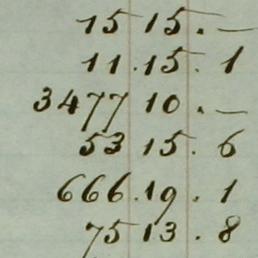 15 15. —
11. 15. 1
3477 10. —
53 15. 6
666. 19. 1
75 13. 8